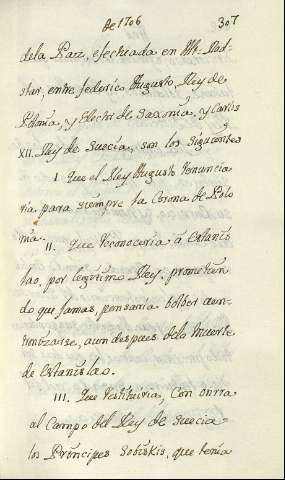 de 1706
307
dela Paz, efectuada en Alt-Rad-
star, entre federico Augusto, Rey de
Polonia, y Electór de Saxonia, y Carlos
XII. Rey de Suecia, son los siguientes
I. Que el Rey Augusto renuncia
ria, para siempre la Corona de Polo
nia.
II. Que reconoceria á Estanis
lao, por legitimo Rey, prometien
do que jamas, pensaria bolber aen-
tronizarse, aun despues dela muerte
de Estanislao.
III. Que restituiria, Con onrra
al Campo del Rey de Suecia
los Principes Sobieskis, que tenia